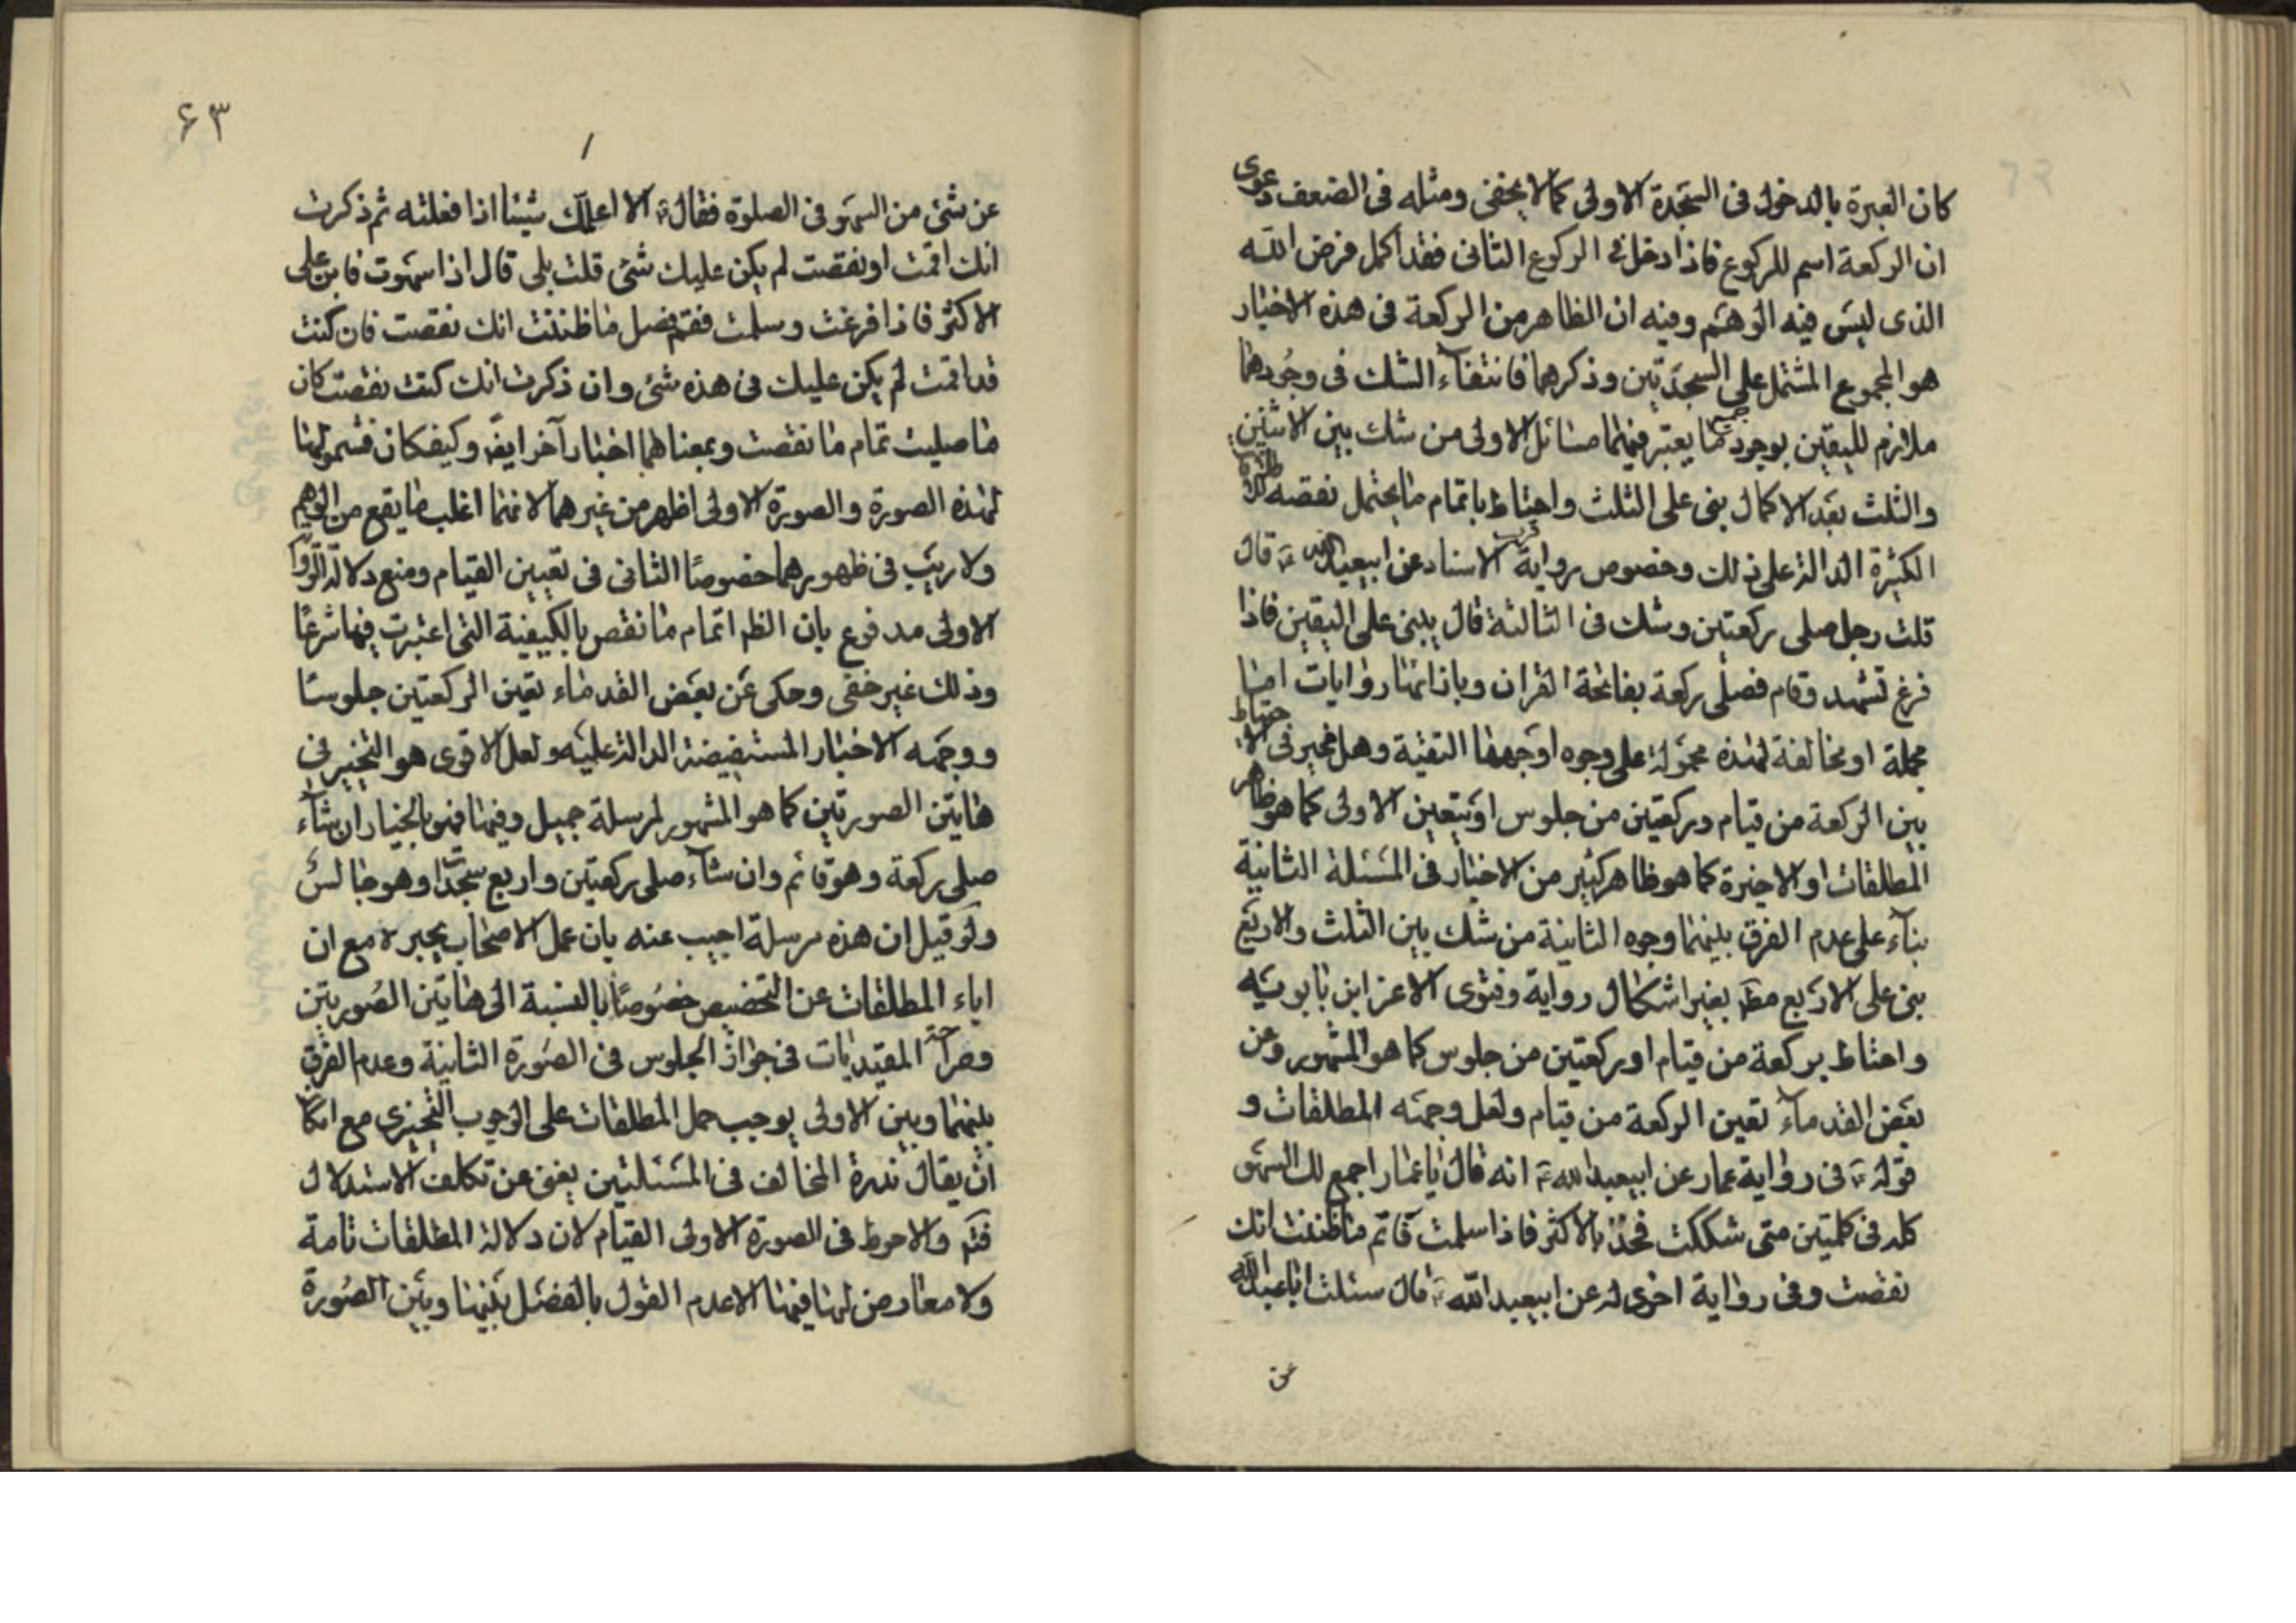 كان العبرة بالدخول فى السجدة الاولى كما لا يخفى ومثله فى الضعف دعوى
ان الركعة اسم للركوع فاذا دخل فى الركوع الثانى فقد اكمل فرض الله
الذى ليس فيه الوهم وفيه ان الظاهر من الركعة فى هذه الاخبار
هو المجموع المشتمل على السجدتين وذكرهما فانتفاء الشك فى وجودهما
ملازم لليقين بوجود جميع ما يعتبر فيهما مسائل الاولى من شك بين الاثنين
والثلث بعد الاكمال بنى على الثلث واحتاط باتمام ما يحتمل نقصه
الكثيرة الدالة على ذلك وخصوص رواية قرب الاسناد عن ابيعبد الله ع قال
قلت رجل صلى ركعتين وشك فى الثالثة قال يبنى على اليقين فاذا
فرغ تشهد وقام فصلى ركعة بفاتحة القران وبازائها روايات اما
مجملة او مخالفة لهذه محمولة على وجوه اوجهها التقية وهل يخير فى الاحتياط
بين الركعة من قيام وركعتين من جلوس او يتعين الاولى كما هو ظاهر
المطلقات او الاخيرة كما هو ظاهر كثير من الاخبار فى المسئلة الثانية
بناء على عدم الفرق بينهما وجوه الثانية من شك بين الثلث والاربع
بنى على الاربع مط بغير اشكال رواية وفتوى الا عن ابن بابويه
واحتاط بركعة من قيام او ركعتين من جلوس كما هو المشهور وعن
بعض القدماء تعين الركعة من قيام ولعل وجهه المطلقات و
قوله ع فى رواية عمار عن ابيعبد الله ع انه قال يا عمار اجمع لك السهو
كله فى كلمتين متى شككت فخذ بالاكثر فاذا سلمت فاتم ما ظننت انك
نقصت وفى رواية اخرى له عن ابيعبد الله ع قال سئلت ابا عبد الله
عن
۶۳
عن شئ من السهو فى الصلوة فقال ع الا اعلمك شيئا اذا فعلته ثم ذكرت
انك اتممت او نقصت لم يكن عليك شئ قلت بلى قال اذا سهوت فابن على
الاكثر فاذا فرغت وسلمت فقم فصل ما ظننت انك نقصت فان كنت
قد اتممت لم يكن عليك فى هذه شئ وان ذكرت انك كنت نقصت كان
ما صليت تمام ما نقصت وبمعناهما اخبار آخر ايضً وكيفكان فشمولها
لهذه الصورة والصورة الاولى اظهر من غيرهما لانهما اغلب ما يقع من الوهم
ولا ريب فى ظهورهما خصوصًا الثانى فى تعيين القيام ومنع دلالة
الاولى مدفوع بان الظ اتمام ما نقص بالكيفية التى اعتبرت فيها شرعًا
وذلك غير خفى وحكى عن بعض القدماء تعين الركعتين جلوسًا
ووجهه الاخبار المستفيضة الدالة عليه ولعل الاقوى هو التخيير فى
هاتين الصورتين كما هو المشهور لمرسلة جميل وفيها فهو بالخيار ان شاء
صلى ركعة وهو قائم وان شاء صلى ركعتين واربع سجدات وهو جالس
ولو قيل ان هذه مرسلة اجيب عنه بان عمل الاصحاب يجبره مع ان
اباء المطلقات عن التخصيص خصوصًا بالنسبة الى هاتين الصورتين
وصراحة المقيدات فى جواز الجلوس فى الصورة الثانية وعدم الفرق
بينهما وبين الاولى يوجب حمل المطلقات على الوجوب التخييرى مع امكان
ان يقال ندرة المخالف فى المسئلتين يغنى عن تكلف الاستدلال
فتم والاحوط فى الصورة الاولى القيام لان دلالة المطلقات تامة
ولا معارض لها فيها الا عدم القول بالفصل بينها وبين الصورة